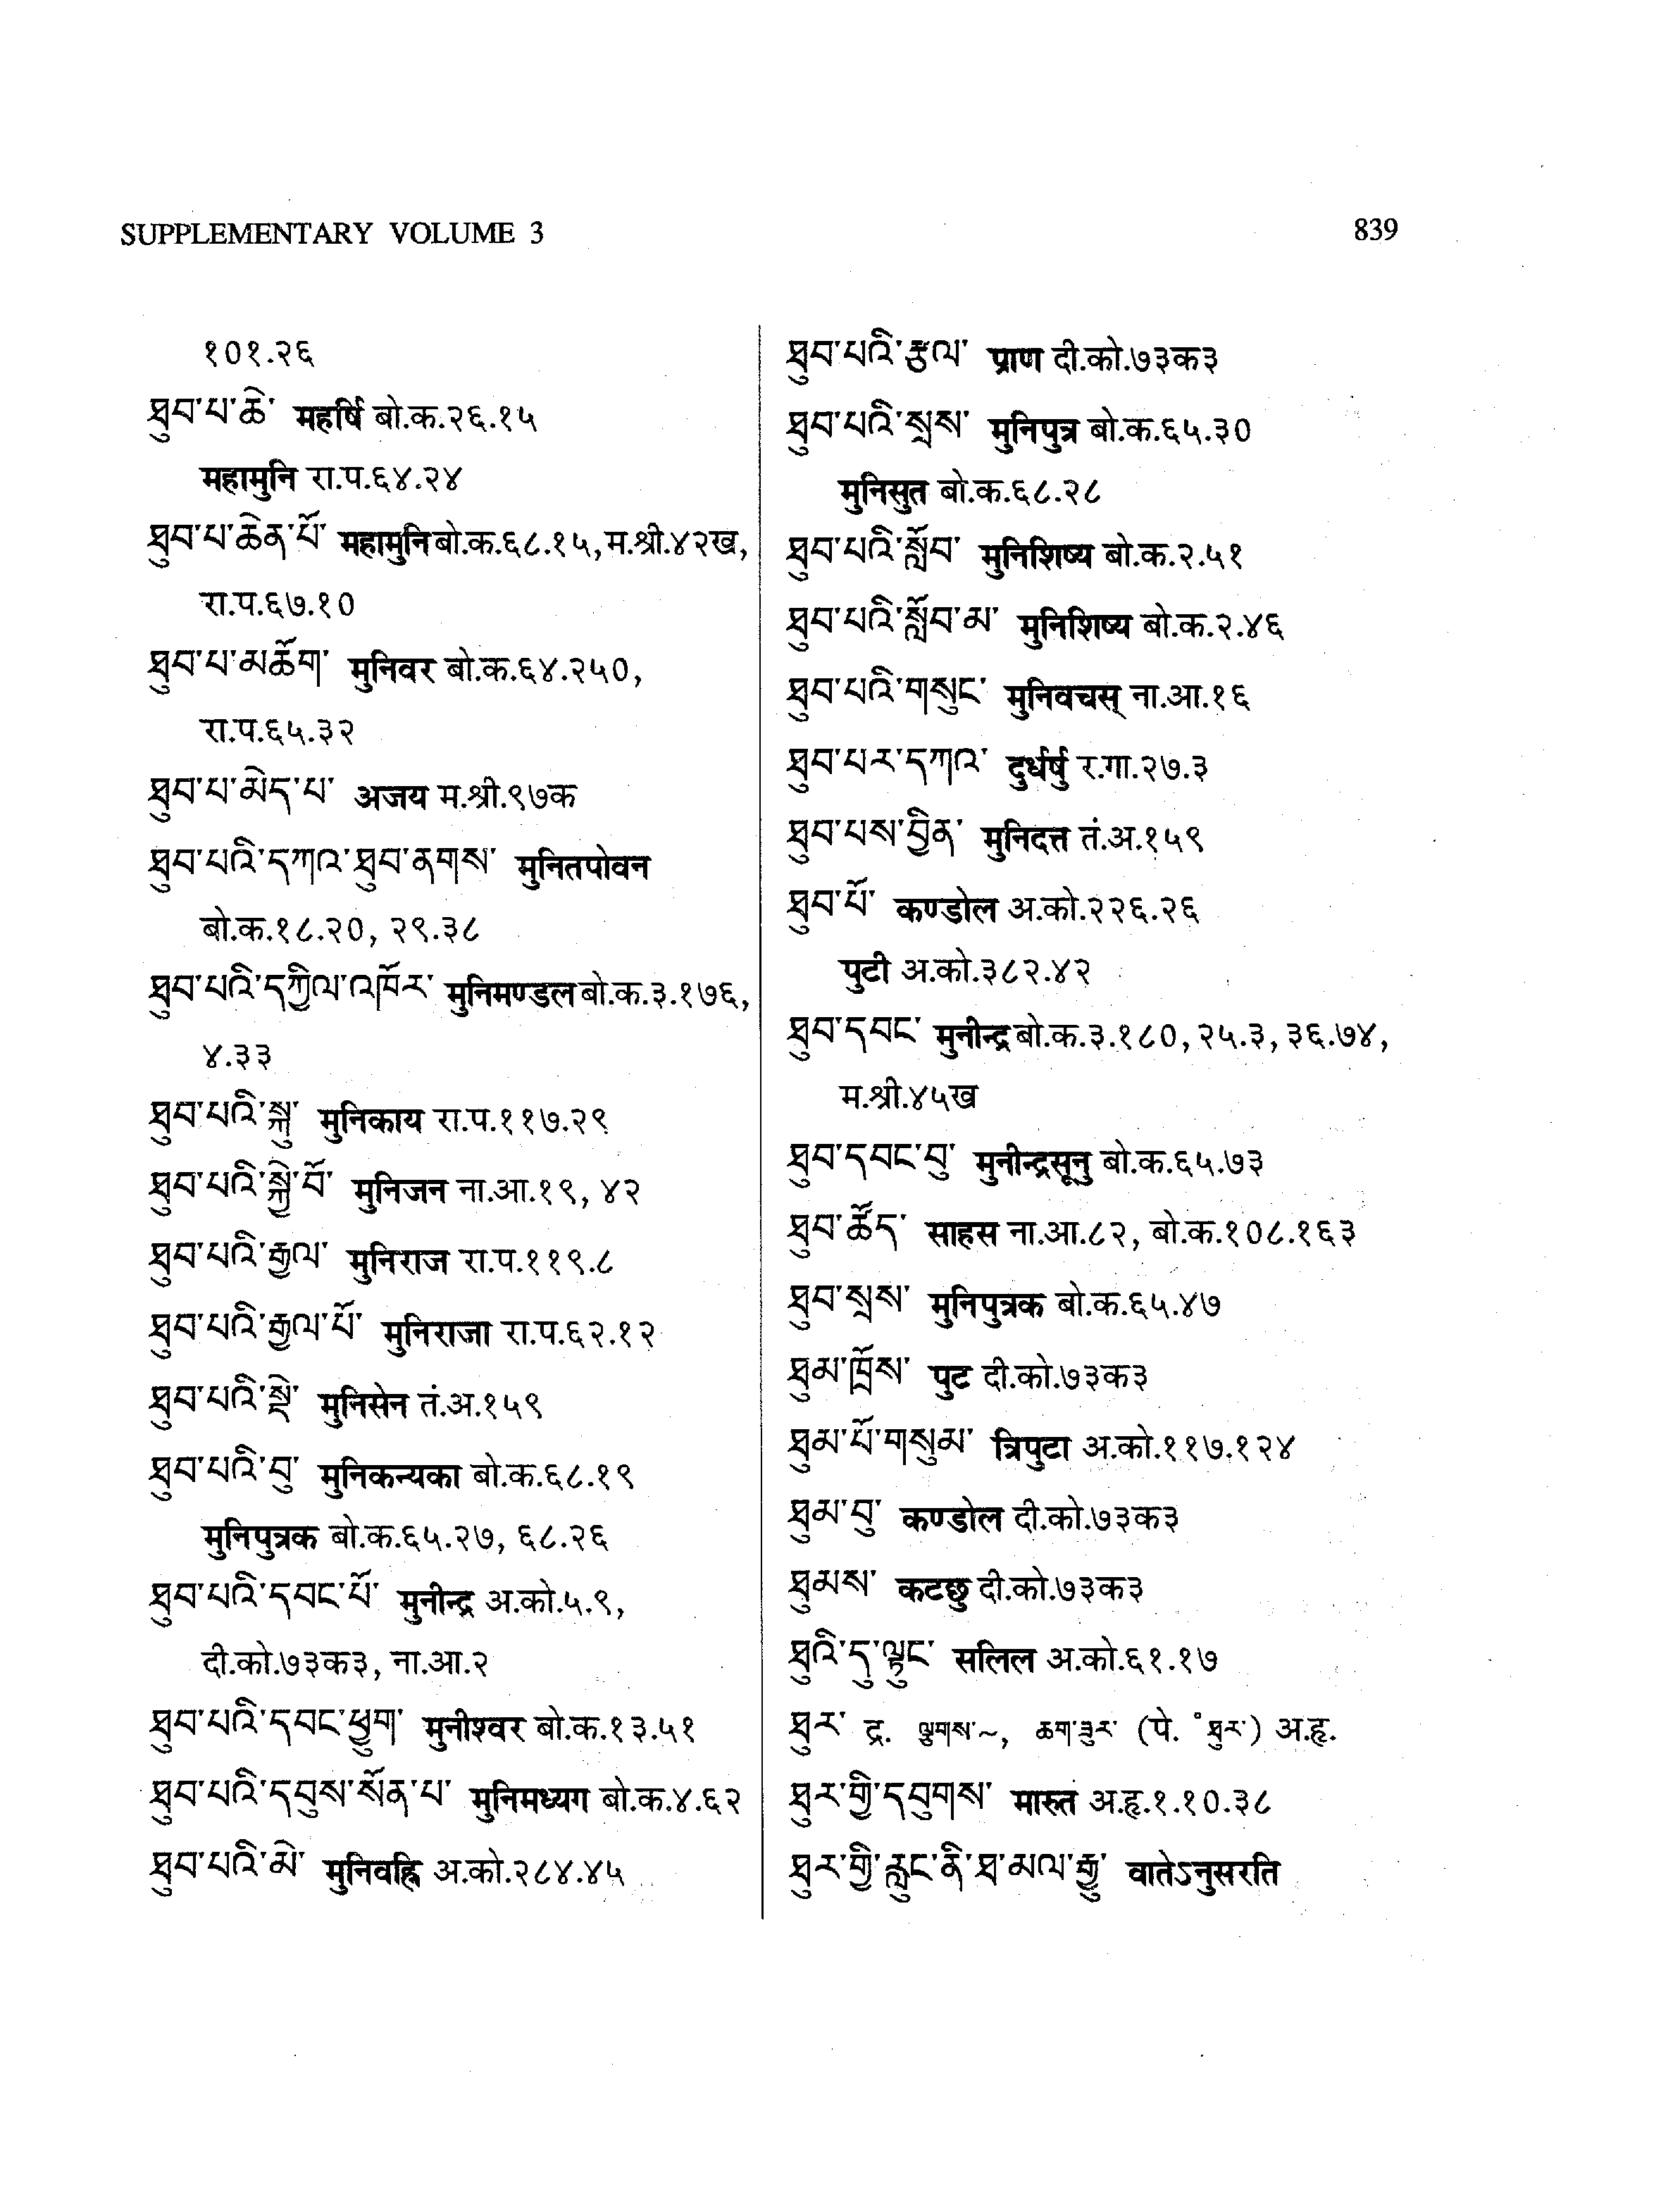 SUPPLEMENTARY VOLUME 3
839
१०१.२६
ཐུབ་པ་ཆེ་ महर्षि बो.क.२६.१५
महामुनि रा.प.६४.२४
ཐུབ་པ་ཆེན་པོ་ महामुनि बो.क.६८.१५, म.श्री.४२ख,
रा.प.६७.१०
ཐུབ་པ་མཆོག་ मुनिवर बो.क.६४.२५०,
रा.प.६५.३२
ཐུབ་པ་མེད་པ་ अजय म.श्री.९७क
ཐུབ་པའི་དཀའ་ཐུབ་ནགས་ मुनितपोवन
बो.क.१८.२०, २९.३८
ཐུབ་པའི་དཀྱིལ་འཁོར་ मुनिमण्डल बो.क.३.१७६,
४.३३
ཐུབ་པའི་སྐུ་ मुनिकाय रा.प.११७.२९
ཐུབ་པའི་སྐྱེ་བོ་ मुनिजन ना.आ.१९, ४२
ཐུབ་པའི་རྒྱལ་ मुनिराज रा.प.११९.८
ཐུབ་པའི་རྒྱལ་པོ་ मुनिराजा रा.प.६२.१२
ཐུབ་པའི་སྡེ་ मुनिसेन तं.अ.१५९
ཐུབ་པའི་བུ་ मुनिकन्यका बो.क.६८.१९
मुनिपुत्रक बो.क.६५.२७, ६८.२६
ཐུབ་པའི་དབང་པོ་ मुनीन्द्र अ.को.५.९,
दी.को.७३क३, ना.आ.२
ཐུབ་པའི་དབང་ཕྱུག་ मुनीश्वर बो.क.१३.५१
ཐུབ་པའི་དབུས་སོན་པ་ मुनिमध्यग बो.क.४.६२
ཐུབ་པའི་མེ་ मुनिवह्नि अ.को.२८४.४५
ཐུབ་པའི་རྩལ་ प्राण दी.को.७३क३
ཐུབ་པའི་སྲས་ मुनिपुत्र बो.क.६५.३०
मुनिसुत बो.क.६८.२८
ཐུབ་པའི་སློབ་ मुनिशिष्य बो.क.२.५१
ཐུབ་པའི་སློབ་མ་ मुनिशिष्य बो.क.२.४६
ཐུབ་པའི་གསུང་ मुनिवचस् ना.आ.१६
ཐུབ་པར་དཀའ་ दुर्धर्षु र.गा.२७.३
ཐུབ་པས་བྱིན་ मुनिदत्त तं.अ.१५९
ཐུབ་པོ་ कण्डोल अ.को.२२६.२६
पुटी अ.को.३८२.४२
ཐུབ་དབང་ मुनीन्द्र बो.क.३.१८०, २५.३, ३६.७४,
म.श्री.४५ख
ཐུབ་དབང་བུ་ मुनीन्द्रसूनु बो.क.६५.७३
ཐུབ་ཚོད་ साहस ना.आ.८२, बो.क.१०८.१६३
ཐུབ་སྲས་ मुनिपुत्रक बो.क.६५.४७
ཐུམ་ཁྲོས་ पुट दी.को.७३क३
ཐུམ་པོ་གསུམ་ त्रिपुटा अ.को.११७.१२४
ཐུམ་བུ་ कण्डोल दी.को.७३क३
ཐུམས་ कटछु दी.को.७३क३
ཐུའི་དུ་ལྟུང་ सलिल अ.को.६१.१७
ཐུར་ द्र. ལྕུགས་~, ཆག་ཟུར་ (पे. ॰ ཐུར་) अ.हृ.
ཐུར་གྱི་དབུགས་ मारुत अ.हृ.१.१०.३८
ཐུར་གྱི་རླུང་ནི་ཐ་མལ་རྒྱུ་ वातेऽनुसरति